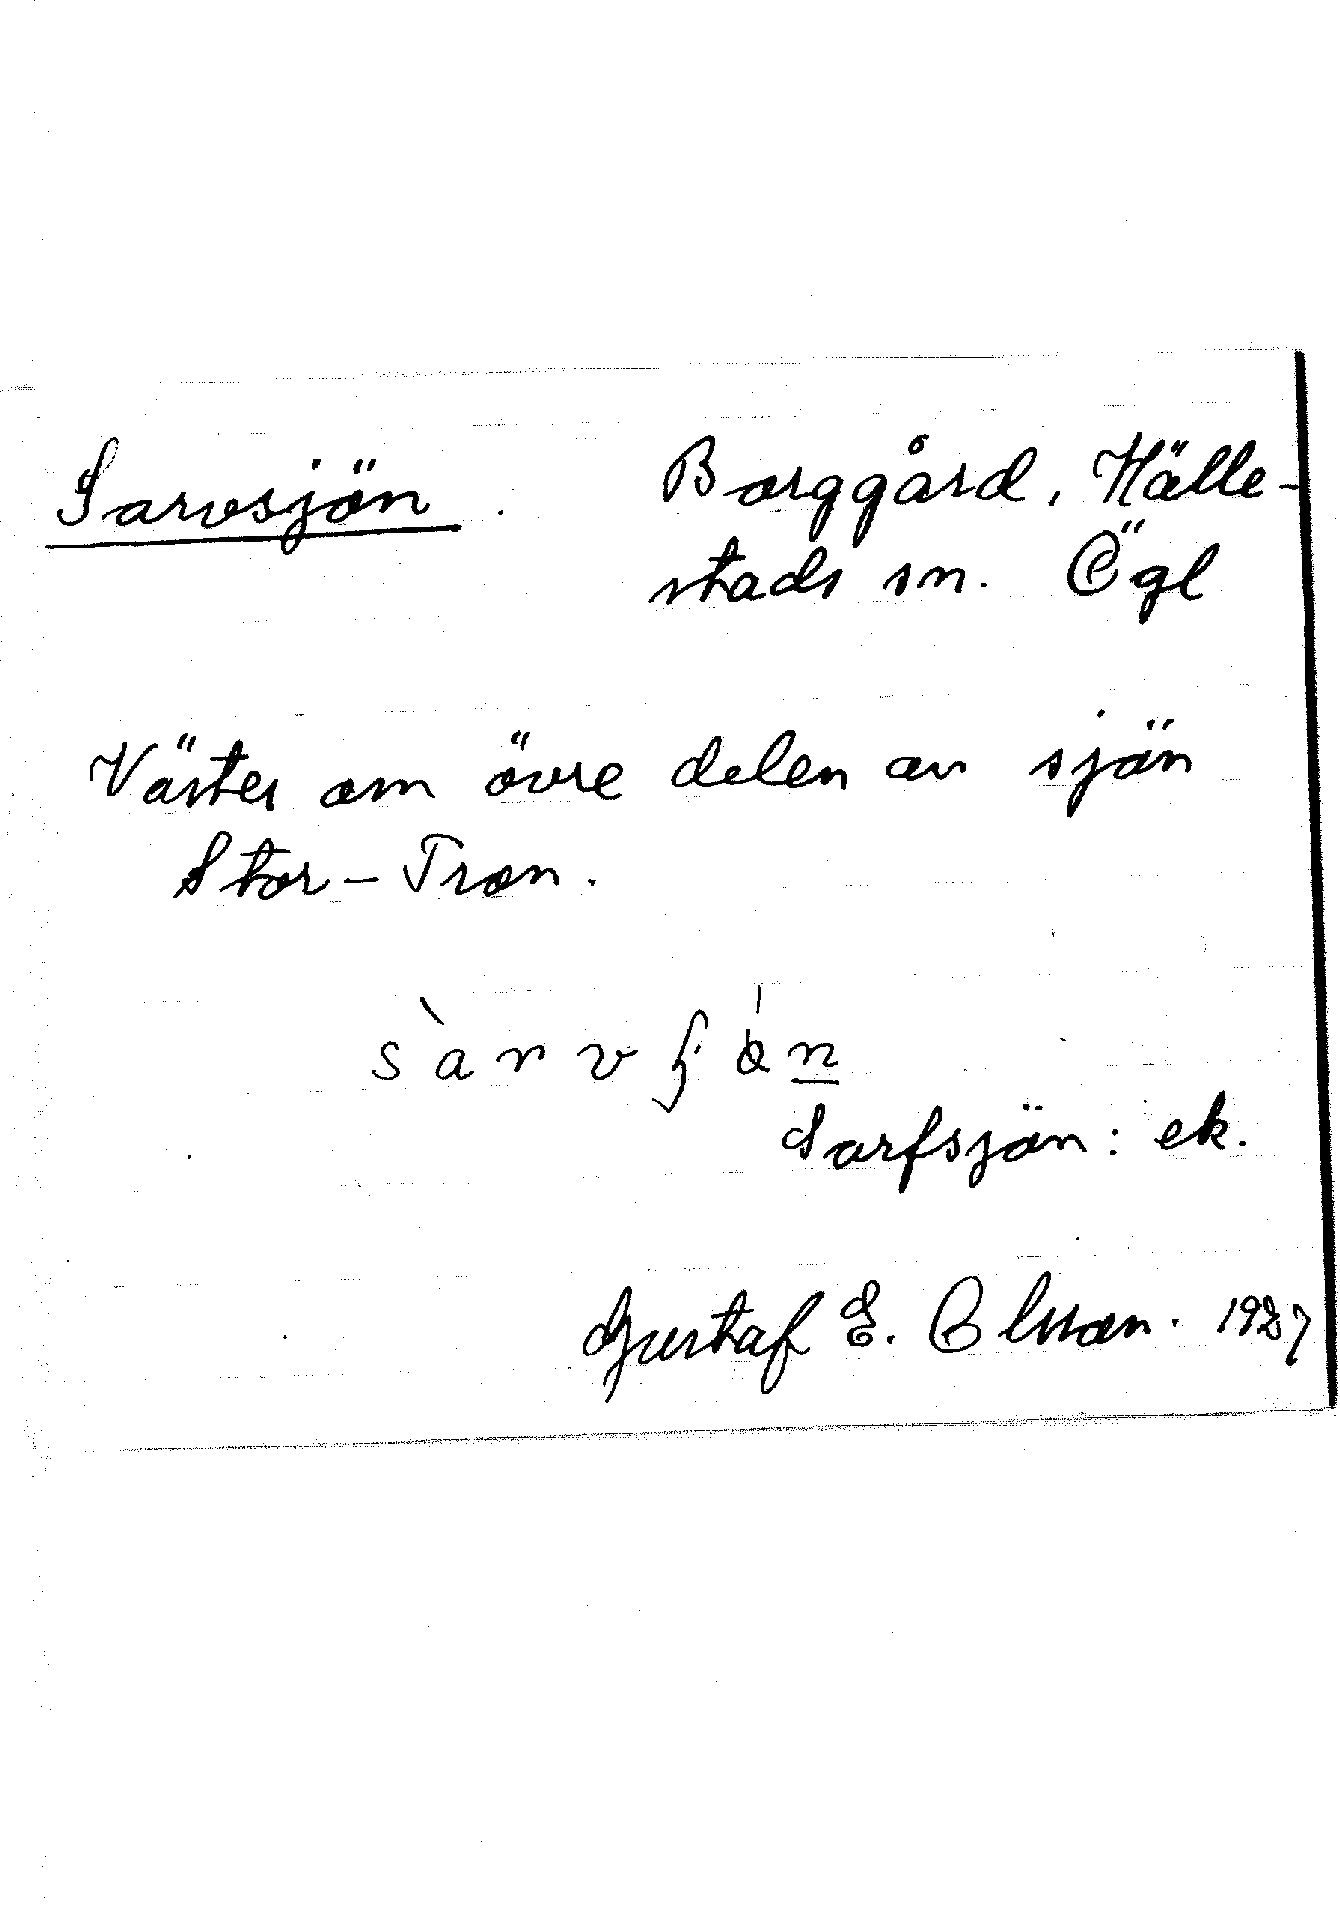 Sarvsjön. Borggård, Hälle-
stads sn. Ögl
Väster om övre delen av sjön
Stor-Tron.
Sarfsjön: ek.
Gustaf E. Olsson. 1927